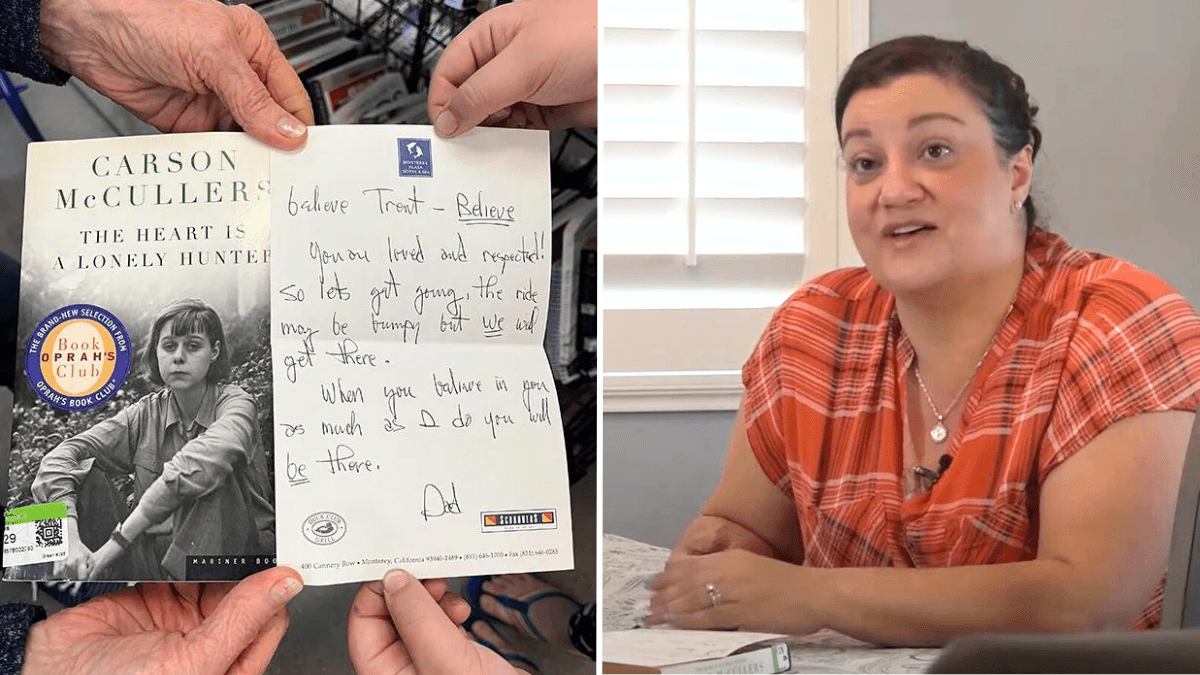 CARSON
McCULLERS
THE HEART IS
A LONELY HUNTER
THE BRAND-NEW SELECTION FROM
Book
OPRAH'S
Club
OPRAH'S BOOK CLUB
29
MARINER BOO
MONTEREY
PLAZA
HOTEL & SPA
believe Trent – Believe
You are loved and respected!
So lets get going, the ride
may be bumpy but we will
get there.
When you believe in you
as much as I do you will
be there.
Dad
DUCK CLUB
GRILL
SCHOONERS
400 Cannery Row • Monterey, California 93940-1489 • (831) 646-1700 • Fax (831) 646-0285
McCULLERS